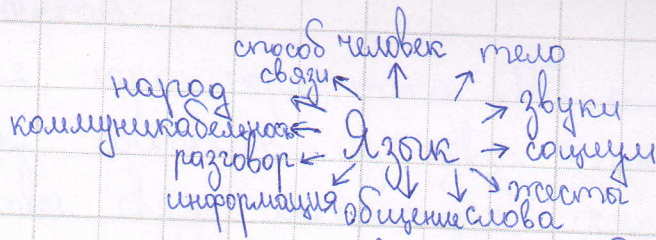 способ человек тело
связи
народ
звуки
коммуникабельность
Язык
социум
разговор
жесты
информация общение слова